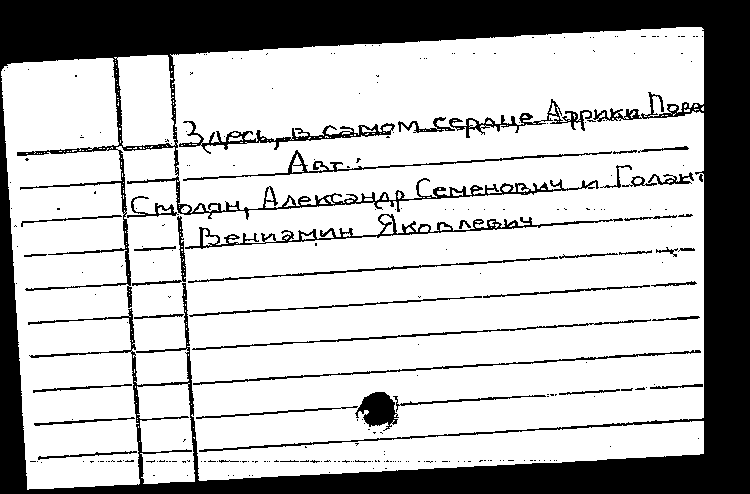 Здесь, в самом сердце Африки. Пове
Авт.:
Смолян, Александр Семенович и Голант
Вениамин Яковлевич